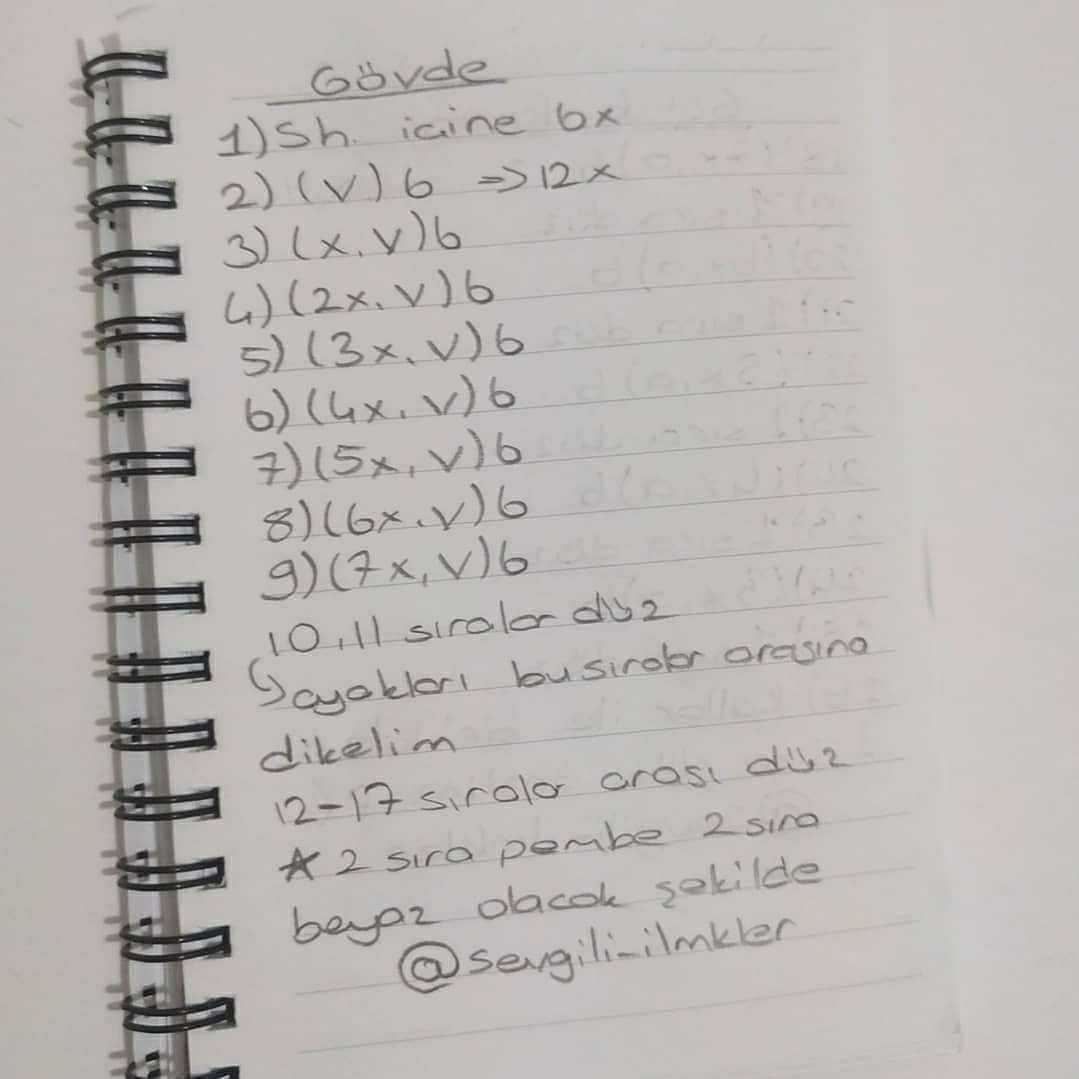 Gövde
1) Sh. içine 6x
2) (V) 6 => 12x
3) (x, V) 6
4) (2x, V) 6
5) (3x, V) 6
6) (4x, V) 6
7) (5x, V) 6
8) (6x, V) 6
9) (7x, V) 6
10, 11 sıralar düz
↳ ayakları bu sıralar arasına
dikelim
12-17 sıralar arası düz
★ 2 sıra pembe 2 sıra
beyaz olacak şekilde
@sevgili_ilmkler